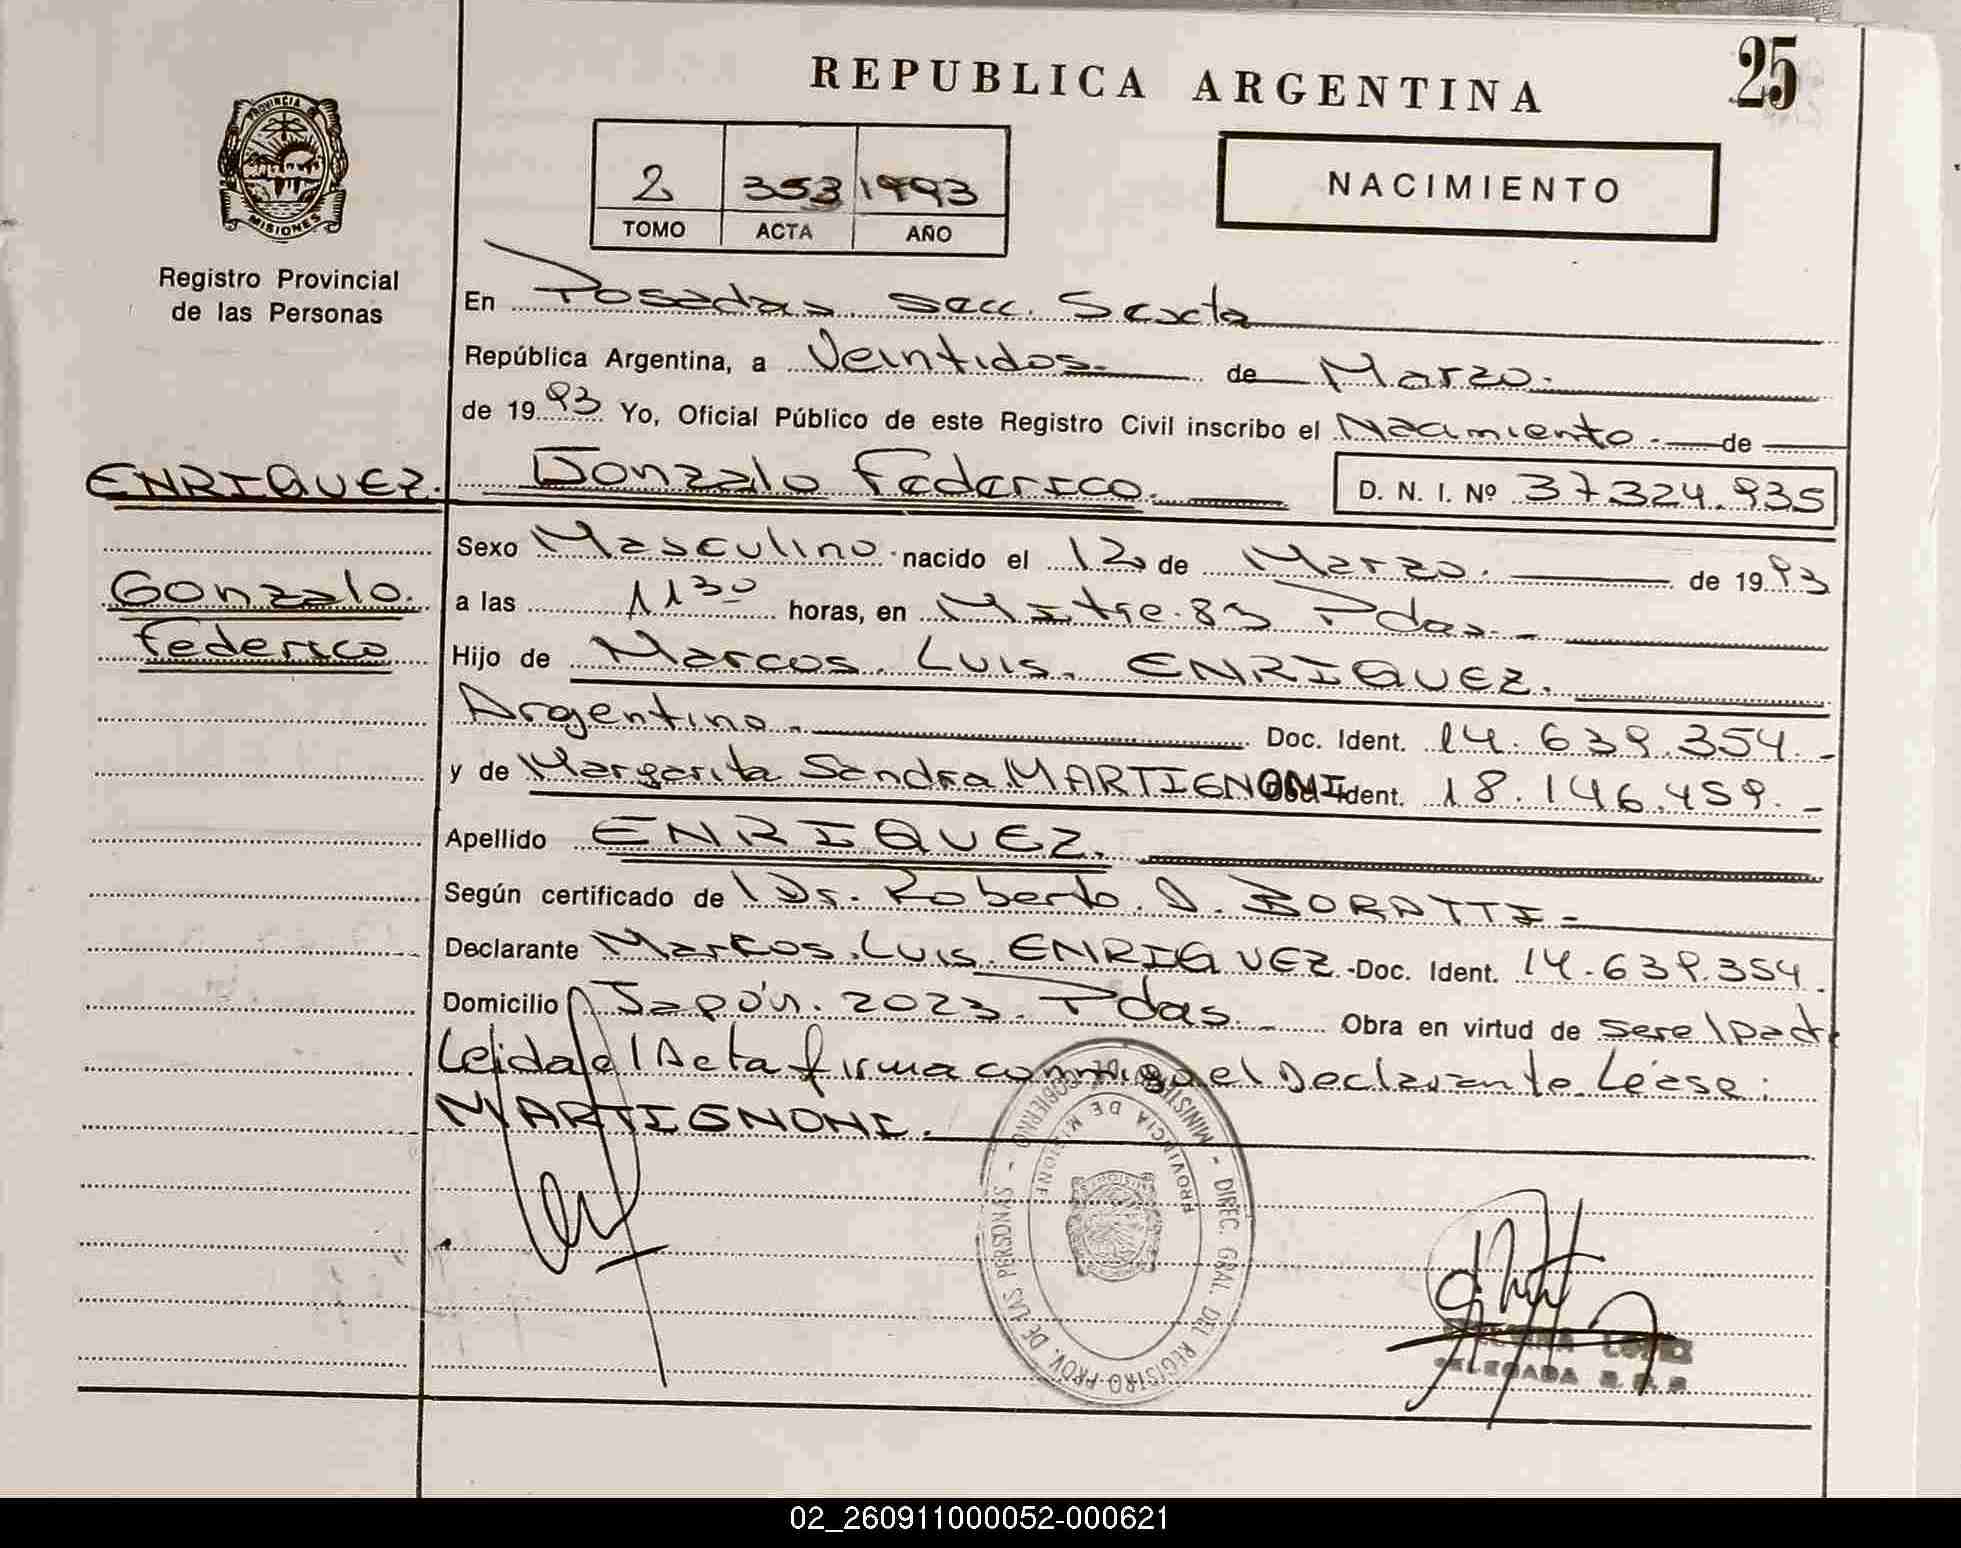 25
REPUBLICA ARGENTINA
PROVINCIA DE MISIONES
2 353 1993
TOMO ACTA AÑO
NACIMIENTO
Registro Provincial
de las Personas
En Posadas secc. Sexta
República Argentina, a Veintidos.- de Marzo.-
de 1993 Yo, Oficial Público de este Registro Civil inscribo el Nacimiento.- de
ENRIQUEZ. Gonzalo Federico. D. N. I. Nº 37.324.935
Sexo Masculino. nacido el 12 de Marzo. de 1993
Gonzalo. a las 11 30 horas, en Mitre. 83 Pdas.-
Federico Hijo de Marcos. Luis. ENRIQUEZ.
Argentino.- Doc. Ident. 14.639.354.-
y de Margarita Sandra MARTIGNONI Ident. 18.146.459.-
Apellido ENRIQUEZ.
Según certificado de Dr. Roberto. D. BORATTI.-
Declarante Marcos. Luis. ENRIQUEZ.- Doc. Ident. 14.639.354.
Domicilio Japón. 2023. Pdas.- Obra en virtud de ser el padre
Leida el Acta firma conmigo el Declarante. Léase:
MARTIGNONI.
MINISTERIO DE GOBIERNO - DIREC. GRAL. DEL REGISTRO PROV. DE LAS PERSONAS -
PROVINCIA DE MISIONES
LOPEZ
DELEGADA
02_260911000052-000621